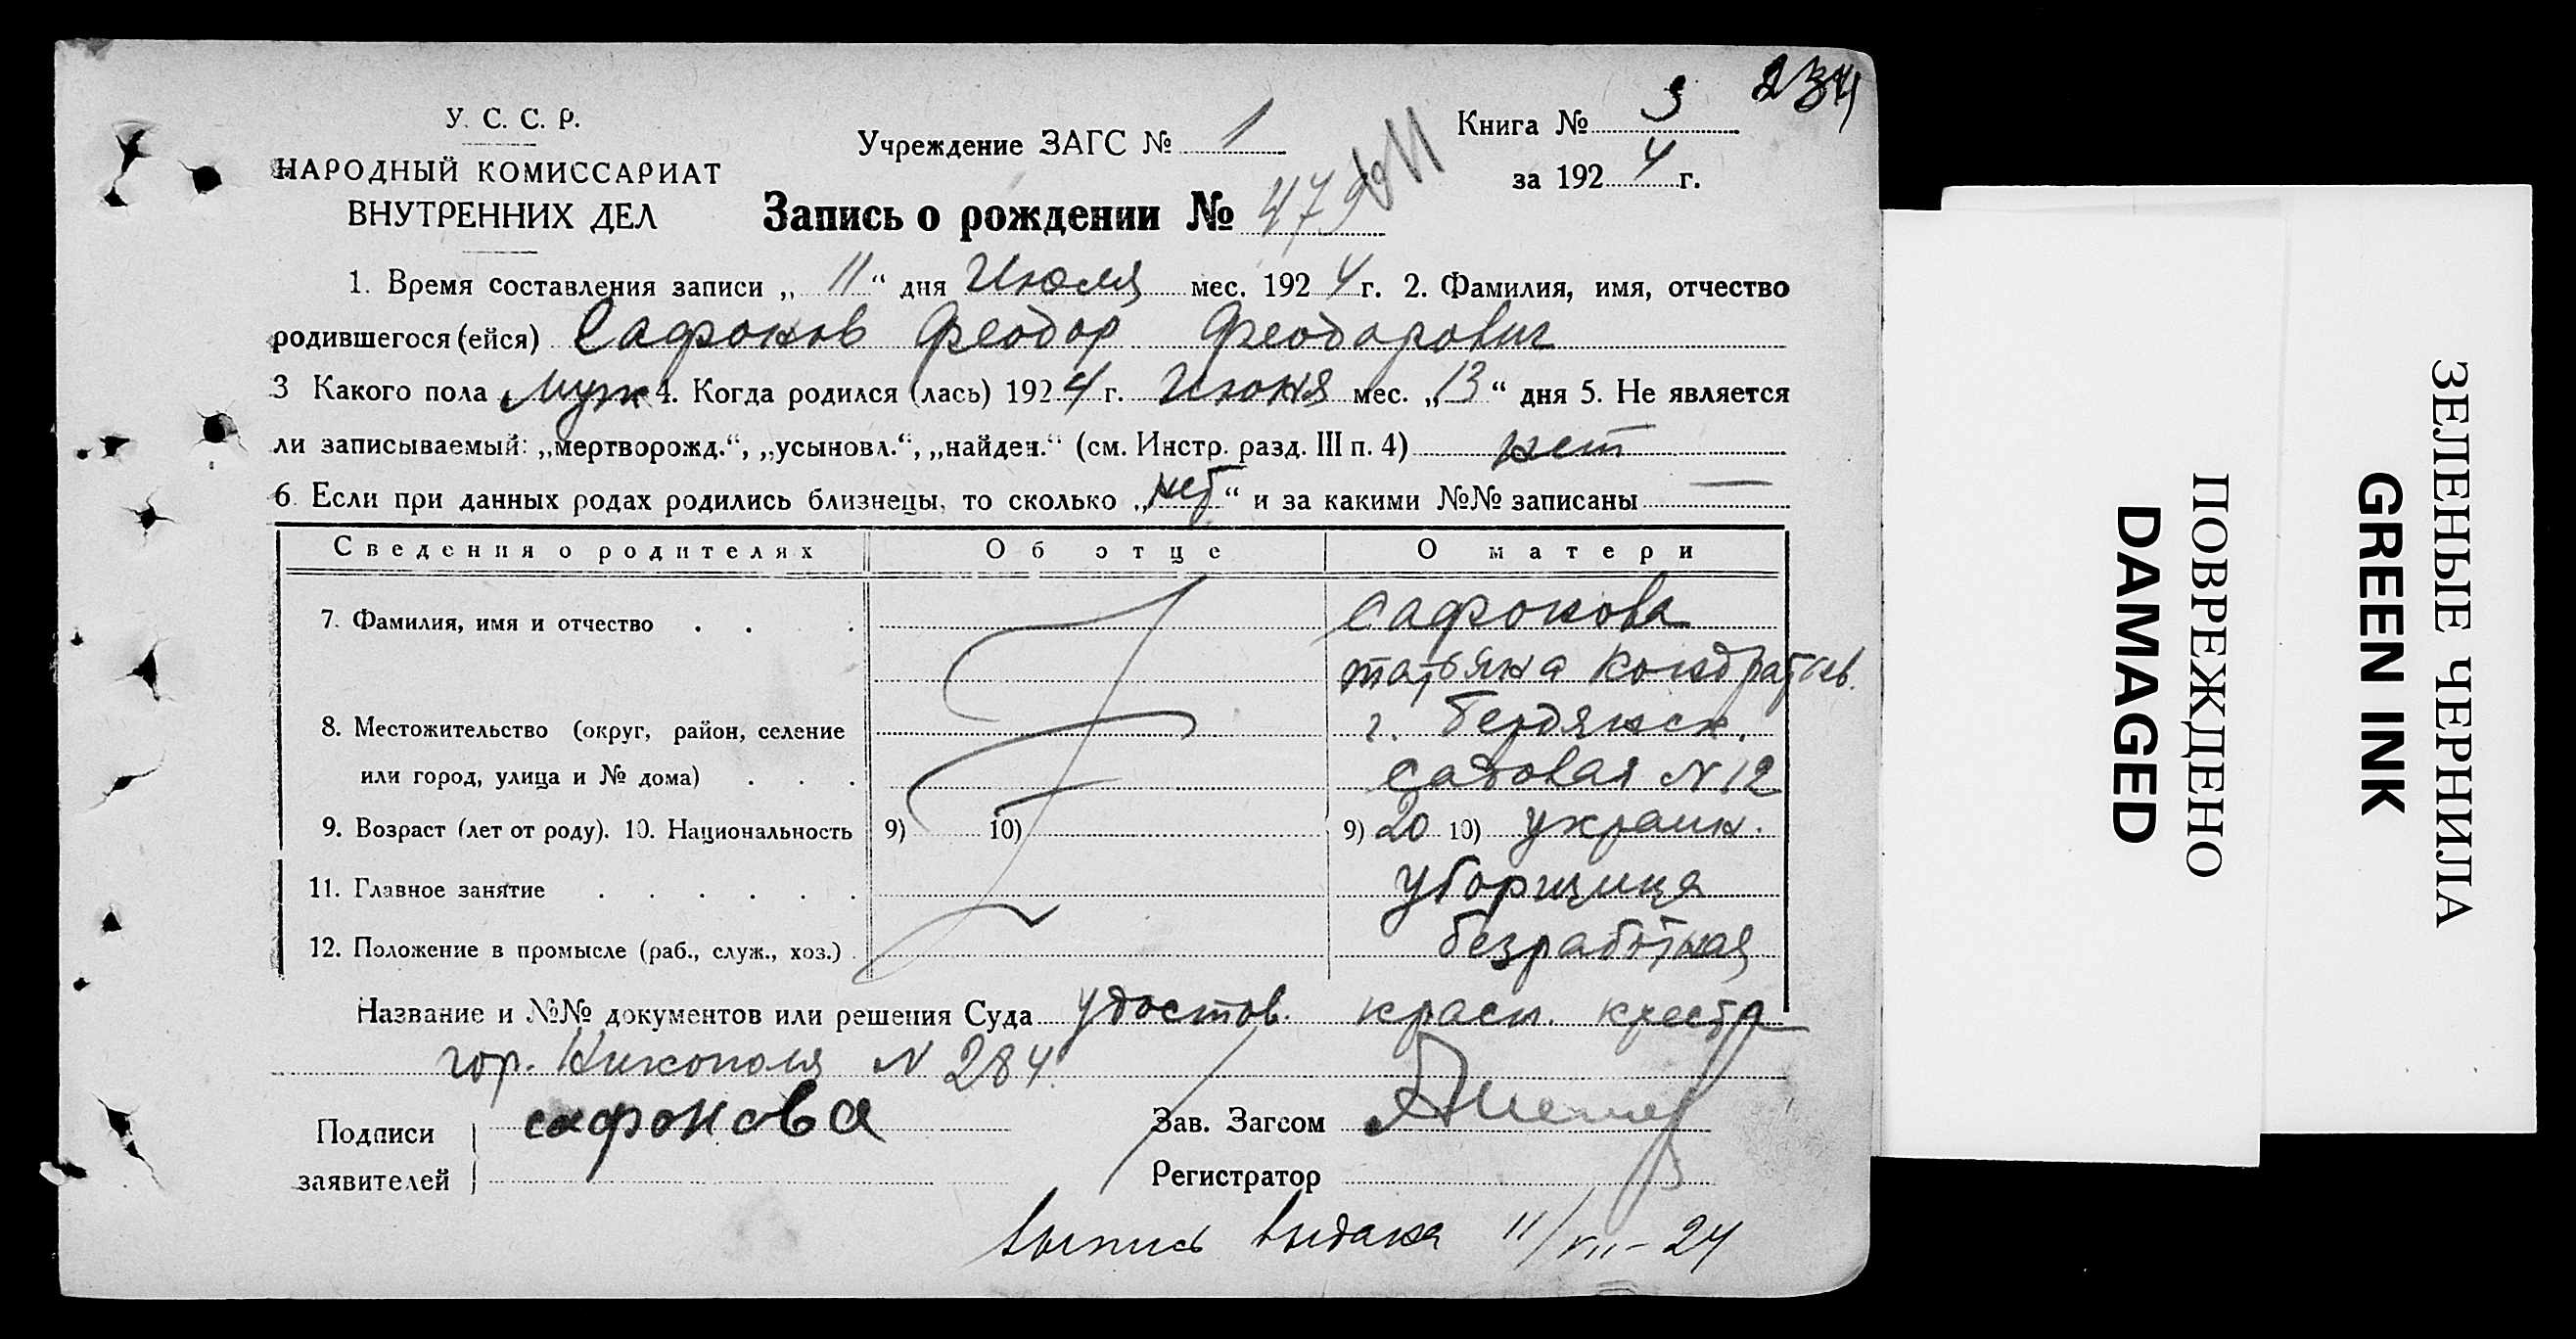 234
У. С. С. Р.
НАРОДНЫЙ КОМИССАРИАТ
ВНУТРЕННИХ ДЕЛ
Учреждение ЗАГС № 1
Книга № 3
за 1924 г.
Запись о рождении № 479
1. Время составления записи „ 11 “ дня Июля мес. 1924 г. 2. Фамилия, имя, отчество
родившегося (ейся) Сафонов Феодор Феодорович
3 Какого пола муж 4. Когда родился (лась) 1924 г. Июня мес. „13“ дня 5. Не является
ли записываемый: „мертворожд.“, „усыновл.“, „найден.“ (см. Инстр. разд. III п. 4) нет
6. Если при данных родах родились близнецы, то сколько „нет“ и за какими №№ записаны —
Сведения о родителях Об отце О матери
7. Фамилия, имя и отчество . . . Сафонова
татьяна Кондратьев.
8. Местожительство (округ, район, селение г. Бердянск.
или город, улица и № дома) . . . Садовая N 12
9. Возраст (лет от роду). 10. Национальность 9) 10) 9) 20 10) украин.
11. Главное занятие . . . . . . Уборщица
12. Положение в промысле (раб., служ., хоз.) . безработная
Название и №№ документов или решения Суда удостов. красн. креста
гор. Никополя N 284.
Подписи заявителей сафонова
Зав. Загсом
Регистратор
выпись выдана 11/VII-24
ПОВРЕЖДЕНО
DAMAGED
ЗЕЛЕНЫЕ ЧЕРНИЛА
GREEN INK